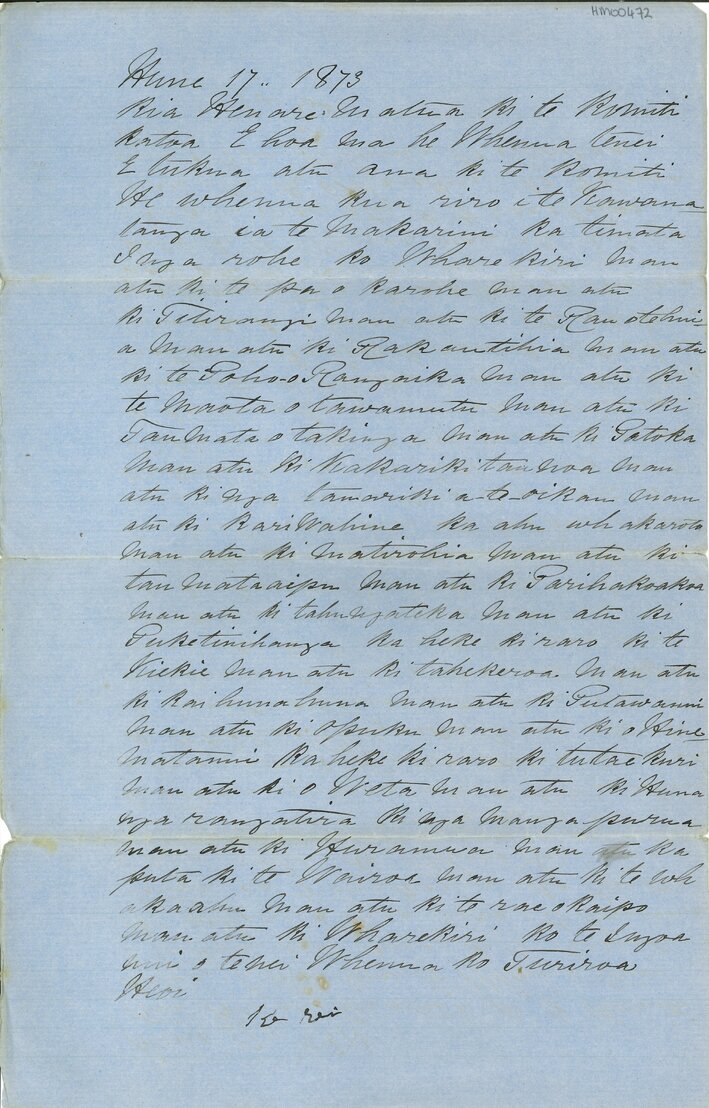 HM00472
Hune 17.. 1873
Kia Henare. Matua ki te Komiti
katoa E hoa ma he Whenua tenei
E tukua atu ana ki te Komiti
He whenua kua riro i te Kawana-
tanga ia te Makarini ka timata
I nga rohe ko Wharekiri mau
atu ki te pa o karohe mau atu
ki Titirangi mau atu ki te Rautehui-
a mau atu ki Rakautihia mau atu
ki te Poho-o-Rangaika mau atu ki
te Maota o tawamutu mau atu ki
Taumata o takinga mau atu ki Patoka
mau atu ki Wakarikitaunoa mau
atu ki nga tamariki-a-te-oikau mau
atu ki KariWahine ka ahu whakaroto
mau atu ki Matirohia mau atu ki
taumataaipu mau atu ki Parihakoakoa
mau atu ki tahungateka mau atu ki
Puketirihanga ka heke ki raro ki te
Kiekie mau atu ki tahekeroa. mau atu
ki kaihunahuna mau atu ki Putawanui
mau atu ki opuku mau atu ki o Hine-
matanui Ka heke ki raro ki tutaekuri
mau atu ki o Weta mau atu ki Huna
nga rangatira ki nga mangapurua
mau atu ki Huramua mau atu ka
puta ki te Wairoa mau atu ki te wh
akaahu mau atu ki te rae o kaipo
mau atu ki Wharekiri ko te Ingoa
nui o tenei Whenua ko Turiroa
Heoi